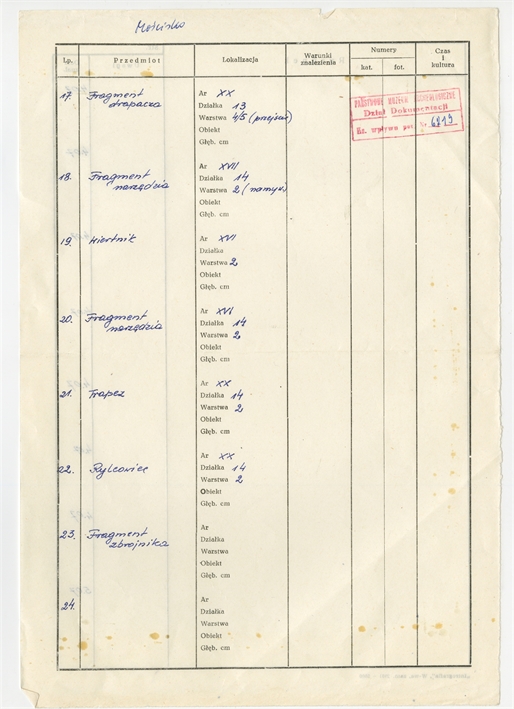 Mościsko
Lp. Przedmiot Lokalizacja Warunki znalezienia Numery kat. fot. Czas i kultura
17. Fragment drapacza
Ar XX
Działka 13
Warstwa 4/5 (przejść)
Obiekt
Głęb. cm
PAŃSTWOWE MUZEUM ARCHEOLOGICZNE
Dział Dokumentacji
Ks. wpływu poz. Nr 6219
18. Fragment narzędzia
Ar XVII
Działka 14
Warstwa 2 (namyw)
Obiekt
Głęb. cm
19. Wiertnik
Ar XVI
Działka
Warstwa 2
Obiekt
Głęb. cm
20. Fragment narzędzia
Ar XVI
Działka 14
Warstwa 2
Obiekt
Głęb. cm
21. Trapez
Ar XX
Działka 14
Warstwa 2
Obiekt
Głęb. cm
22. Rylcowiec
Ar XX
Działka 14
Warstwa 2
Obiekt
Głęb. cm
23. Fragment zbrojnika
Ar
Działka
Warstwa
Obiekt
Głęb. cm
24.
Ar
Działka
Warstwa
Obiekt
Głęb. cm